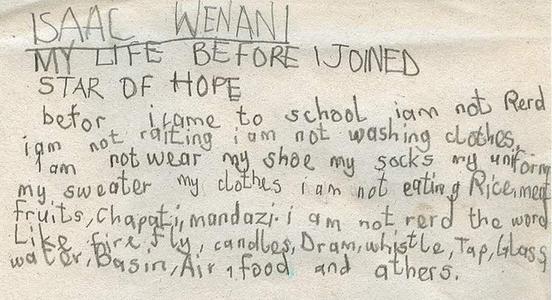 ISAAC WENANI
MY LIFE BEFORE I JOINED
STAR OF HOPE
befor icame to school iam not Rerd
iam not raiting iam not washing clothes,
Iam not wear my shoe my socks my uniform
my sweater my clothes iam not eating Rice, meat
fruits, Chapati, mandazi. i am not rerd the word
Like fire fly, candles, Dram, whistle, Tap, Glass
water, Basin, Air, food and athers.